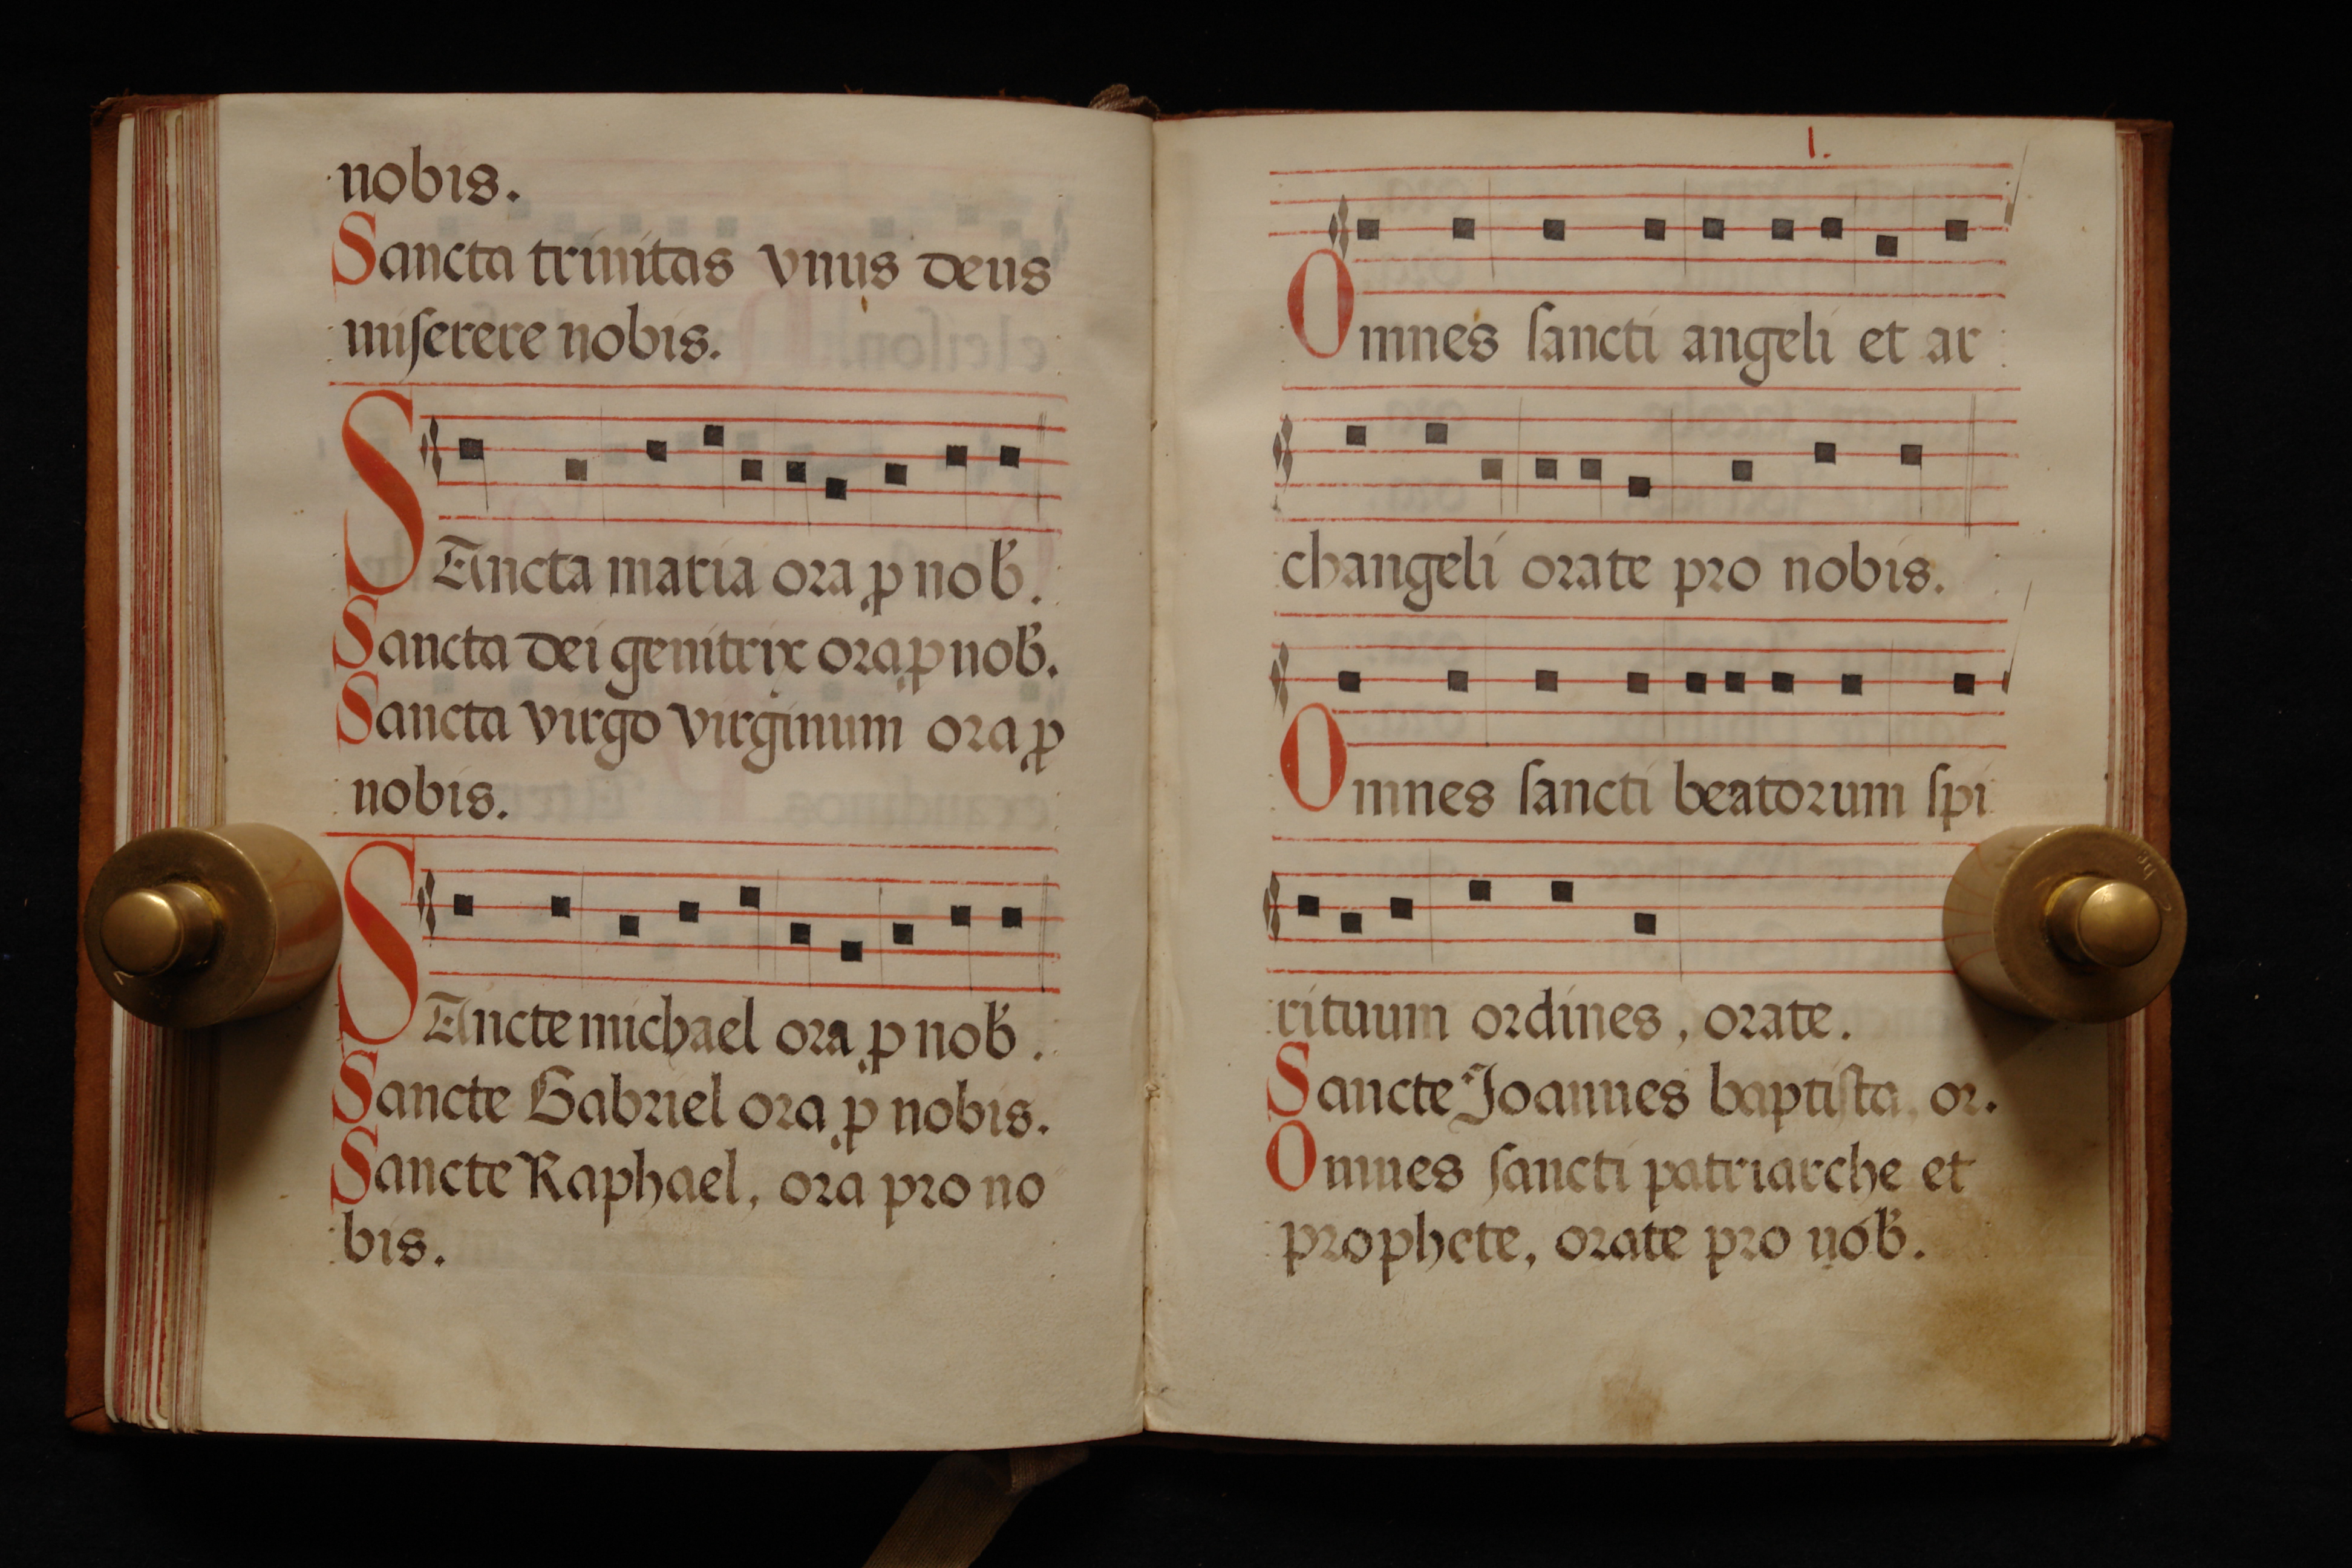 nobis.
Sancta trinitas vnus deus
miſerere nobis.
SAncta maria ora ꝓ nob̃.
Sancta dei genitrix ora ꝓ nob̃.
Sancta virgo virginum ora ꝓ
nobis.
SAncte michael ora ꝓ nob̃.
Sancte Gabriel ora ꝓ nobis.
Sancte Raphael, ora pro no
bis.
1.
Omnes ſancti angeli et ar
changeli orate pro nobis.
Omnes ſancti beatorum ſpi
rituum ordines, orate.
Sancte Joannes baptiſta, or.
Omnes ſancti patriarche et
prophete, orate pro nob̃.